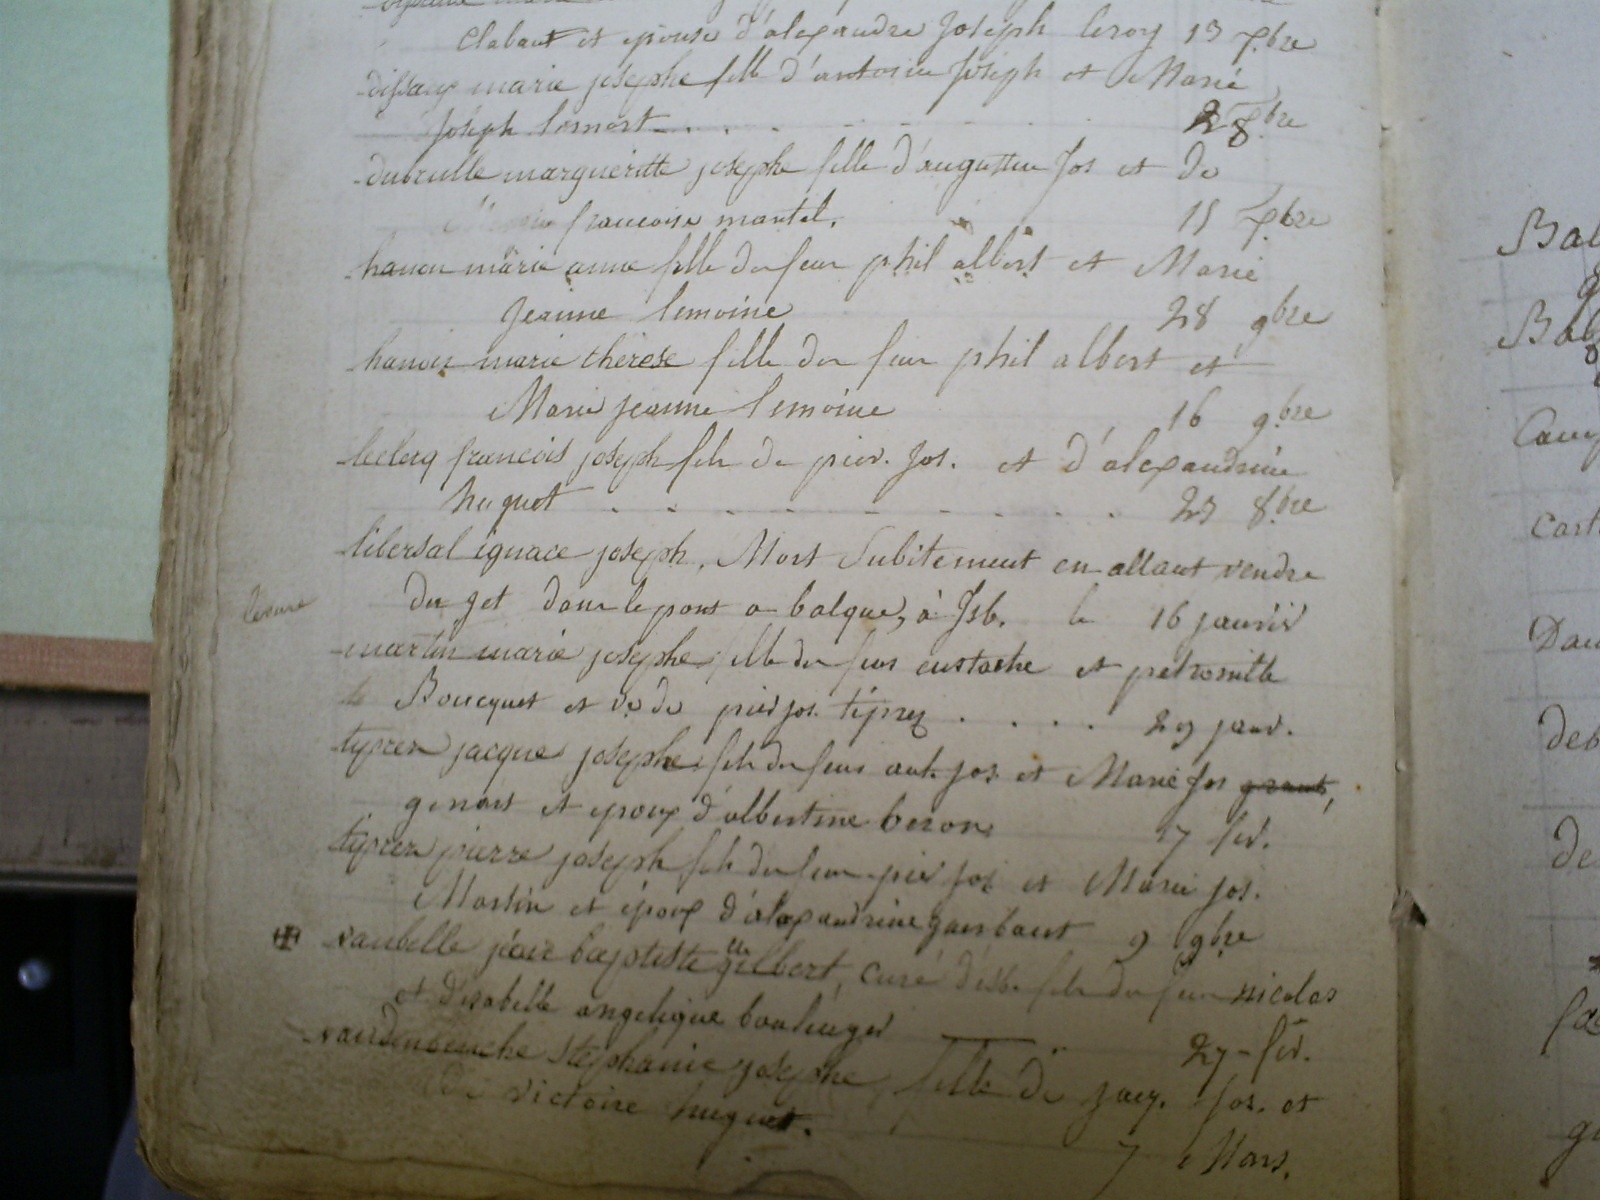 Clabaut et epouse d'alexandre Joseph leroy 13 7.bre
dissaux marie josephe fille d'antoine Joseph et Marie
Joseph lemort 28 7.bre
dubrulle margueritte josephe fille d'augustin Jos et De
francoise mantel. 15 7.bre
hanon marie anne fille du feu phil albert et Marie
Jeanne lemoine 28 9bre
hanon marie therese fille du feu phil albert et
Marie jeanne lemoine 16 9.bre
leclerq francois joseph fils de pier. Jos. et d'alexandrine
huquet 23 8.bre
libersal ignace joseph, Mort Subitement en allant vendre
du jet dans le pont a balque, à Isb. le 16 janvier
martin marie josephe fille du feus eustache et petronille
Boucquet et ve de pier jos. tiprez 29 janv.
typrez jacque josephe fils du feus ant. jos. et Marie Jos
genort et epoux d'albertine beron 17 fév.
typrez pierre joseph fils du feu pier Jos et Marie jos.
Martin et époux d'alexandrine gambart 9 9bre
vanbelle jean baptiste gilbert, curé d'isb. fils du feu nicolas
et d'isabelle angelique boulenger 27 - fév.
vandenbuche Stephanie josephe, fille De jacq. Jos. et
De victoire huguet. 7 Mars.
Bal
Cauy
Cart
Dau
deb
de